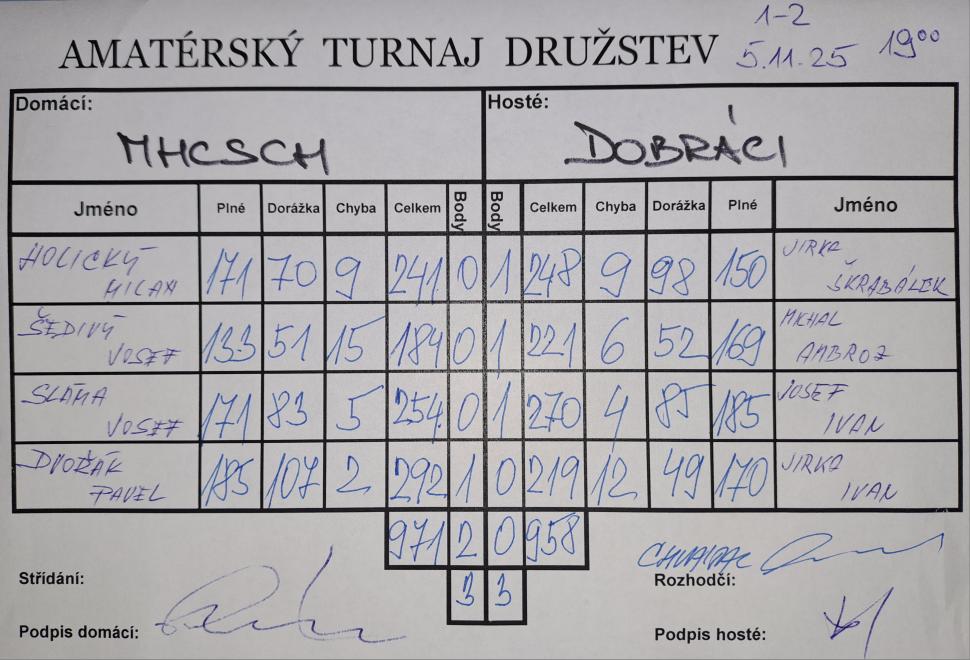 1-2
AMATÉRSKÝ TURNAJ DRUŽSTEV 5.11.25 19⁰⁰
Domácí: Hosté:
MHCSCH DOBRÁCI
Jméno Plné Dorážka Chyba Celkem Body Body Celkem Chyba Dorážka Plné Jméno
HOLICKÝ MILAN 171 70 9 241 0 1 248 9 98 150 JIRKA ŠKRABÁLEK
ŠEDIVÝ JOSEF 133 51 15 184 0 1 221 6 52 169 MICHAL AMBROZ
SLÁMA JOSEF 171 83 5 254 0 1 270 4 85 185 JOSEF IVAN
DVOŘÁK PAVEL 185 107 2 292 1 0 219 12 49 170 JIRKA IVAN
971 2 0 958
3 3
Střídání: Rozhodčí:
Podpis domácí: Podpis hosté: